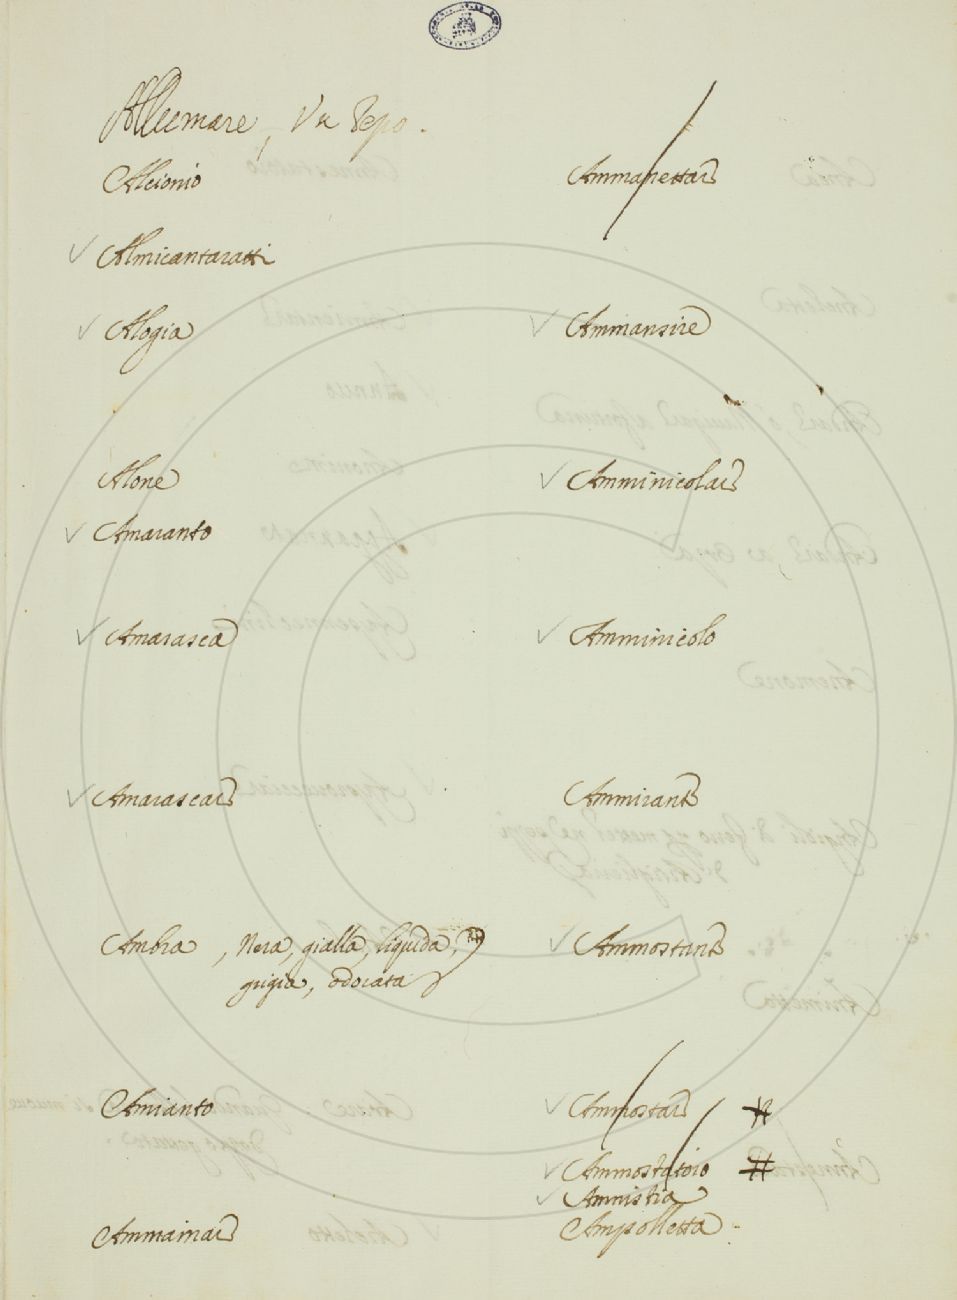 Allumare, Va dopo.
Alcionio
Almicantaratti
Alogia
Alone
Amaranto
Amarasca
Amarascare
Ambra, Nera, gialla, liquida,
grigia, odorata
Amianto
Ammainare
Ammanettare
Ammansire
Amminicolare
Amminicolo
Ammirante
Ammostante
Ammostare #
Ammostatoio #
Amnistia
Ampolletta